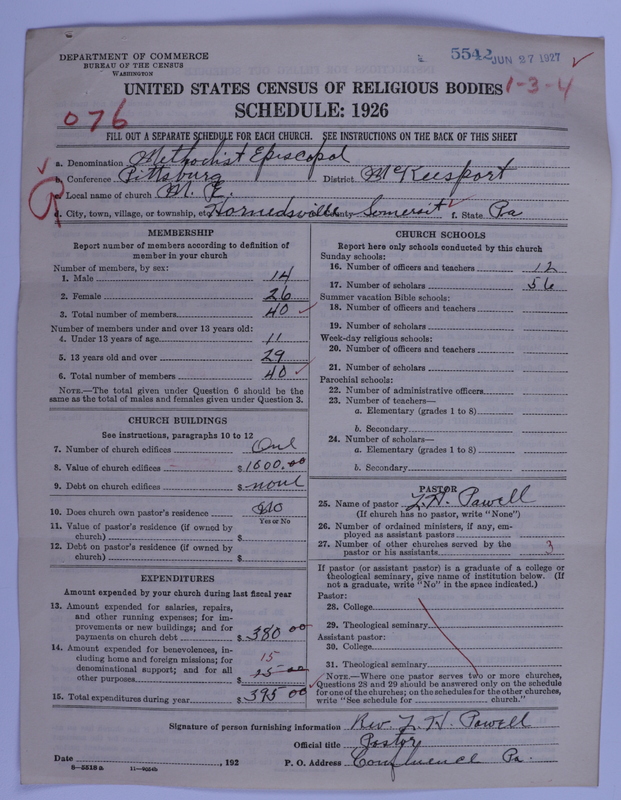 DEPARTMENT OF COMMERCE
BUREAU OF THE CENSUS
WASHINGTON
5542 JUN 27 1927
UNITED STATES CENSUS OF RELIGIOUS BODIES 1-3-4
SCHEDULE: 1926
076
FILL OUT A SEPARATE SCHEDULE FOR EACH CHURCH. SEE INSTRUCTIONS ON THE BACK OF THIS SHEET
a. Denomination Methodist Episcopal
b. Conference Pittsburg District McKeesport
c. Local name of church M. E.
d. City, town, village, or township, etc. Harnedsville e. County Somerset f. State Pa
MEMBERSHIP
Report number of members according to definition of
member in your church
Number of members, by sex:
1. Male 14
2. Female 26
3. Total number of members 40
Number of members under and over 13 years old:
4. Under 13 years of age 11
5. 13 years old and over 29
6. Total number of members 40
NOTE.—The total given under Question 6 should be the
same as the total of males and females given under Question 3.
CHURCH BUILDINGS
See instructions, paragraphs 10 to 12
7. Number of church edifices One
8. Value of church edifices $ 1600.00
9. Debt on church edifices $ none
10. Does church own pastor's residence No
Yes or No
11. Value of pastor's residence (if owned by
church) $
12. Debt on pastor's residence (if owned by
church) $
EXPENDITURES
Amount expended by your church during last fiscal year
13. Amount expended for salaries, repairs,
and other running expenses; for im-
provements or new buildings; and for
payments on church debt $ 380 00
14. Amount expended for benevolences, in-
cluding home and foreign missions; for
denominational support; and for all
other purposes 15 15 00
15. Total expenditures during year $ 395 00
CHURCH SCHOOLS
Report here only schools conducted by this church
Sunday schools:
16. Number of officers and teachers 12
17. Number of scholars 56
Summer vacation Bible schools:
18. Number of officers and teachers
19. Number of scholars
Week-day religious schools:
20. Number of officers and teachers
21. Number of scholars
Parochial schools:
22. Number of administrative officers
23. Number of teachers—
a. Elementary (grades 1 to 8)
b. Secondary
24. Number of scholars—
a. Elementary (grades 1 to 8)
b. Secondary
PASTOR
25. Name of pastor L. H. Powell
(If church has no pastor, write "None")
26. Number of ordained ministers, if any, em-
ployed as assistant pastors
27. Number of other churches served by the
pastor or his assistants 3
If pastor (or assistant pastor) is a graduate of a college or
theological seminary, give name of institution below. (If
not a graduate, write "No" in the space indicated.)
Pastor:
28. College
29. Theological seminary
Assistant pastor:
30. College
31. Theological seminary
NOTE.—Where one pastor serves two or more churches,
Questions 28 and 29 should be answered only on the schedule
for one of the churches; on the schedules for the other churches,
write "See schedule for church."
Signature of person furnishing information Rev. L. H. Powell
Official title Pastor
Date , 192 P. O. Address Confluence Pa.
8-5518 a